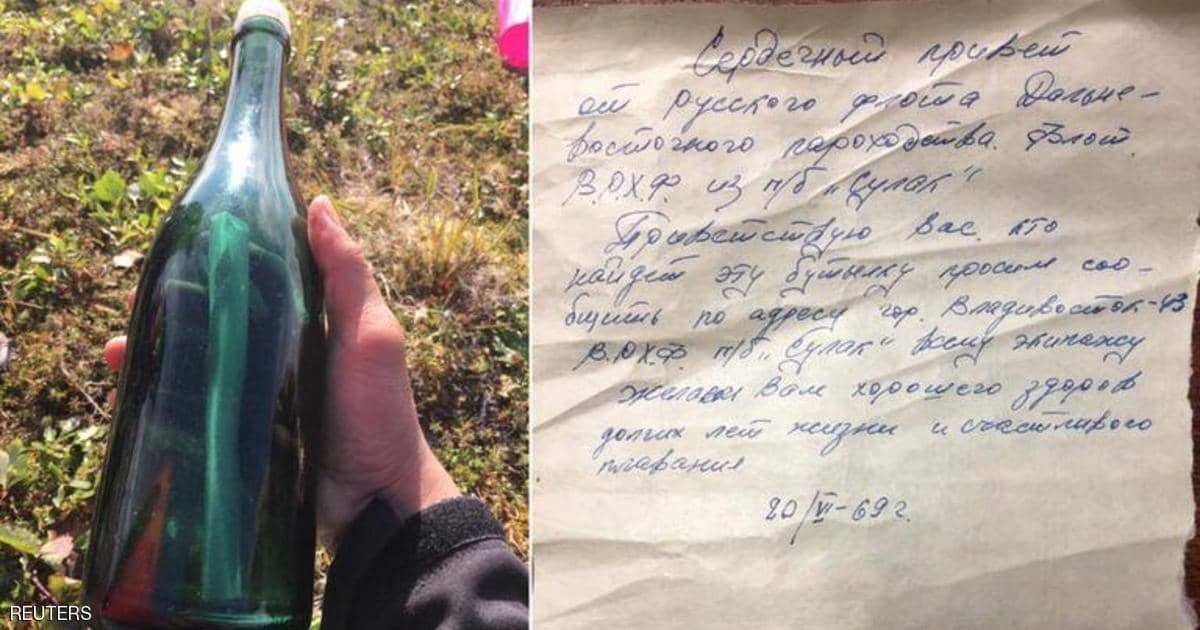 Сердечный привет
от русского флота Дальне-
восточного пароходства. Флот.
В.Р.Х.Ф. из п/б „Сулак“
Приветствую Вас кто
найдет эту бутылку просим соо-
бщить по адресу гор. Владивосток-43
В.Р.Х.Ф. п/б „Сулак“ всему экипажу
желаем Вам хорошего здоров
долгих лет жизни и счастливого
плавания
20/VI-69г.
REUTERS